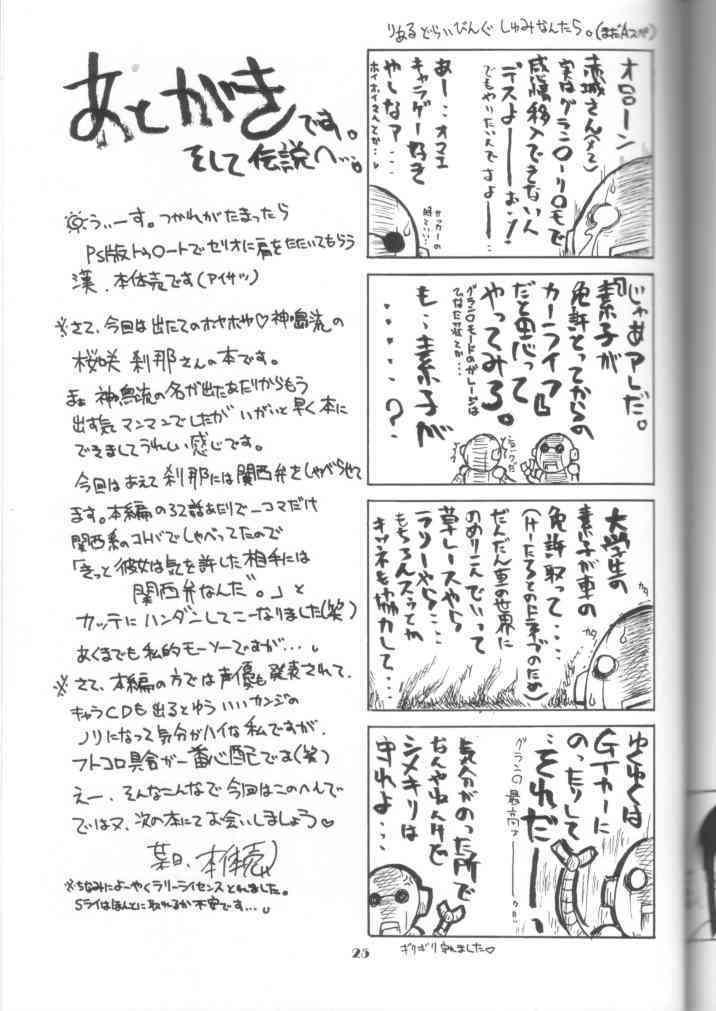 りあるどらいびんぐしゅみなんたら。(まだAスペ)
オローン
赤城さん(メ2)
実はグラン〇ーリ〇モで
感情移入できないん
デスよーーおっ!
でもやりたいんですよーー
あー・・オマエ
キャラゲー好き
やしなァ・・・
「じゃあアレだ。
素子が
免許とってからの
カーライフ」
だと思って
やってみろ。
グラン〇モードのガレージは
も・・素子が
・・・・・?
大学生の
素子が車の
免許取って・・・・
(けーたろとのドライブのため)
だんだん車の世界に
のめりこんでいって
草レースやら
ラリーやら・・・
もちろんスゥとか
キツネも協力して・・・
ゆくゆくは
GTカーに
のったりして
・・それだーーっ
グラン〇最高ァーーっ!!
気分がのった所で
なんやねんけど
シメキリは
守れよ・・・
ギリギリ守れました♡
あとがきです。
そして伝説へ…。
うぃーす。つかれがたまったら
PS版トゥ〇ートでセリオに肩をたたいてもらう
漢、本体売です(アイサツ)
※さて、今回は出たてのホヤホヤ♡神鳴流の
桜咲 刹那さんの本です。
まぁ神鳴流の名が出たあたりからもう
出す気マンマンでしたがいがいと早く本に
できましてうれしい感じです。
今回はあえて刹那には関西弁をしゃべらせて
ます。本編の32話あたりで一コマだけ
関西系のコトバでしゃべってたので
「きっと彼女は気を許した相手には
関西弁なんだ。」と
カッテにハンダンしてこーなりました(笑)
あくまでも私的モーソーですが…
※さて、本編の方では声優も発表されて、
キャラCDも出るとゆういいカンジの
ノリになって気分がハイな私ですが、
フトコロ具合が一番心配です(笑)
えー、そんなこんなで今回はこのへんで
ではヌ、次の本にてお会いしましょう♡
某日、本体売
※ちなみによーやくラリーライセンスとれました。
Sライはほんとに取れるか不安です…
25